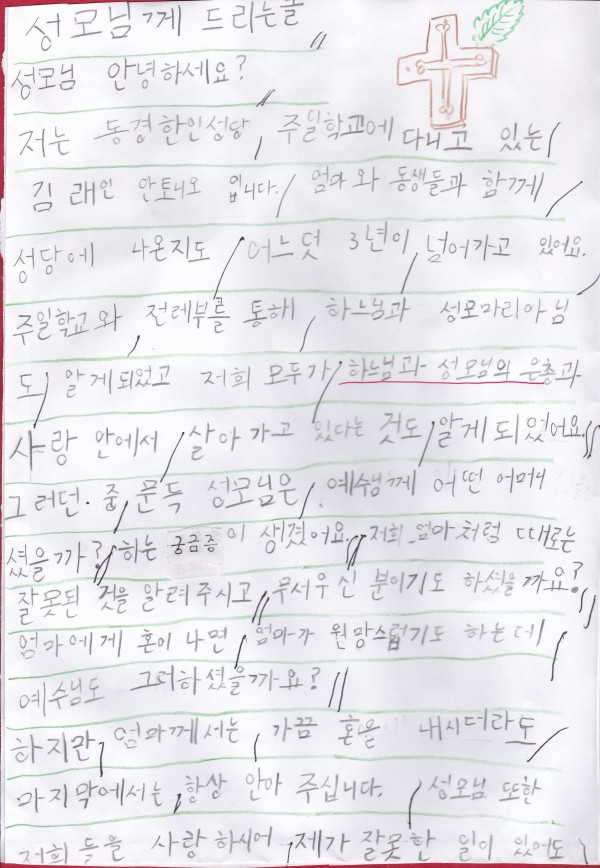 성모님께 드리는글
성모님 안녕하세요?
저는 동경한인성당, 주일학교에 다니고 있는
김래인 안토니오 입니다. 엄마와 동생들과 함께
성당에 나온지도 어느덧 3년이 넘어가고 있어요.
주일학교와 전례부를 통해 하느님과 성모마리아님
도 알게되었고 저희 모두가 하느님과 성모님의 은총과
사랑 안에서 살아가고 있다는 것도 알게되었어요.
그러던. 중 문득 성모님은, 예수님께 어떤 어머니
셨을까? 하는 궁금증이 생겼어요. 저희 엄마처럼 때로는
잘못된 것을 알려주시고 무서우신 분이기도 하셨을까요?
엄마에게 혼이 나면 엄마가 원망스럽기도 하는데
예수님도 그러하셨을까요?
하지만, 엄마께서는 가끔 혼을 내시더라도
마지막에서는 항상 안아 주십니다. 성모님 또한
저희 들을 사랑하시어 제가 잘못한 일이 있어도